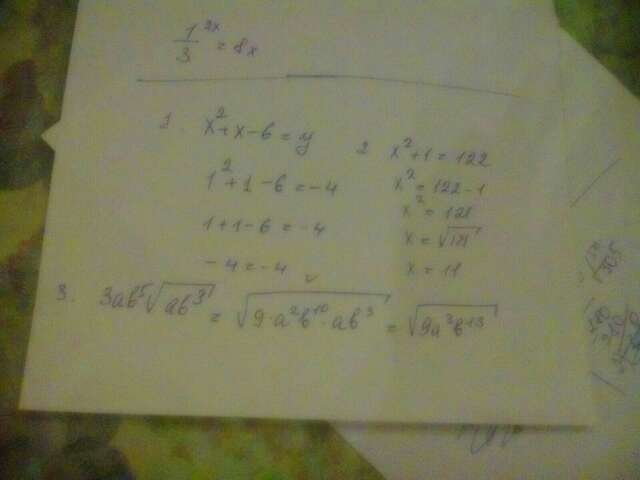 1/3 2x = 8x
1. x² + x - 6 = y
1² + 1 - 6 = -4
1 + 1 - 6 = -4
-4 = -4 ✓
2 x² + 1 = 122
x² = 122 - 1
x² = 121
x = √121
x = 11
3. 3ab⁵√ab³ = √9·a²b¹⁰·ab³ = √9a³b¹³